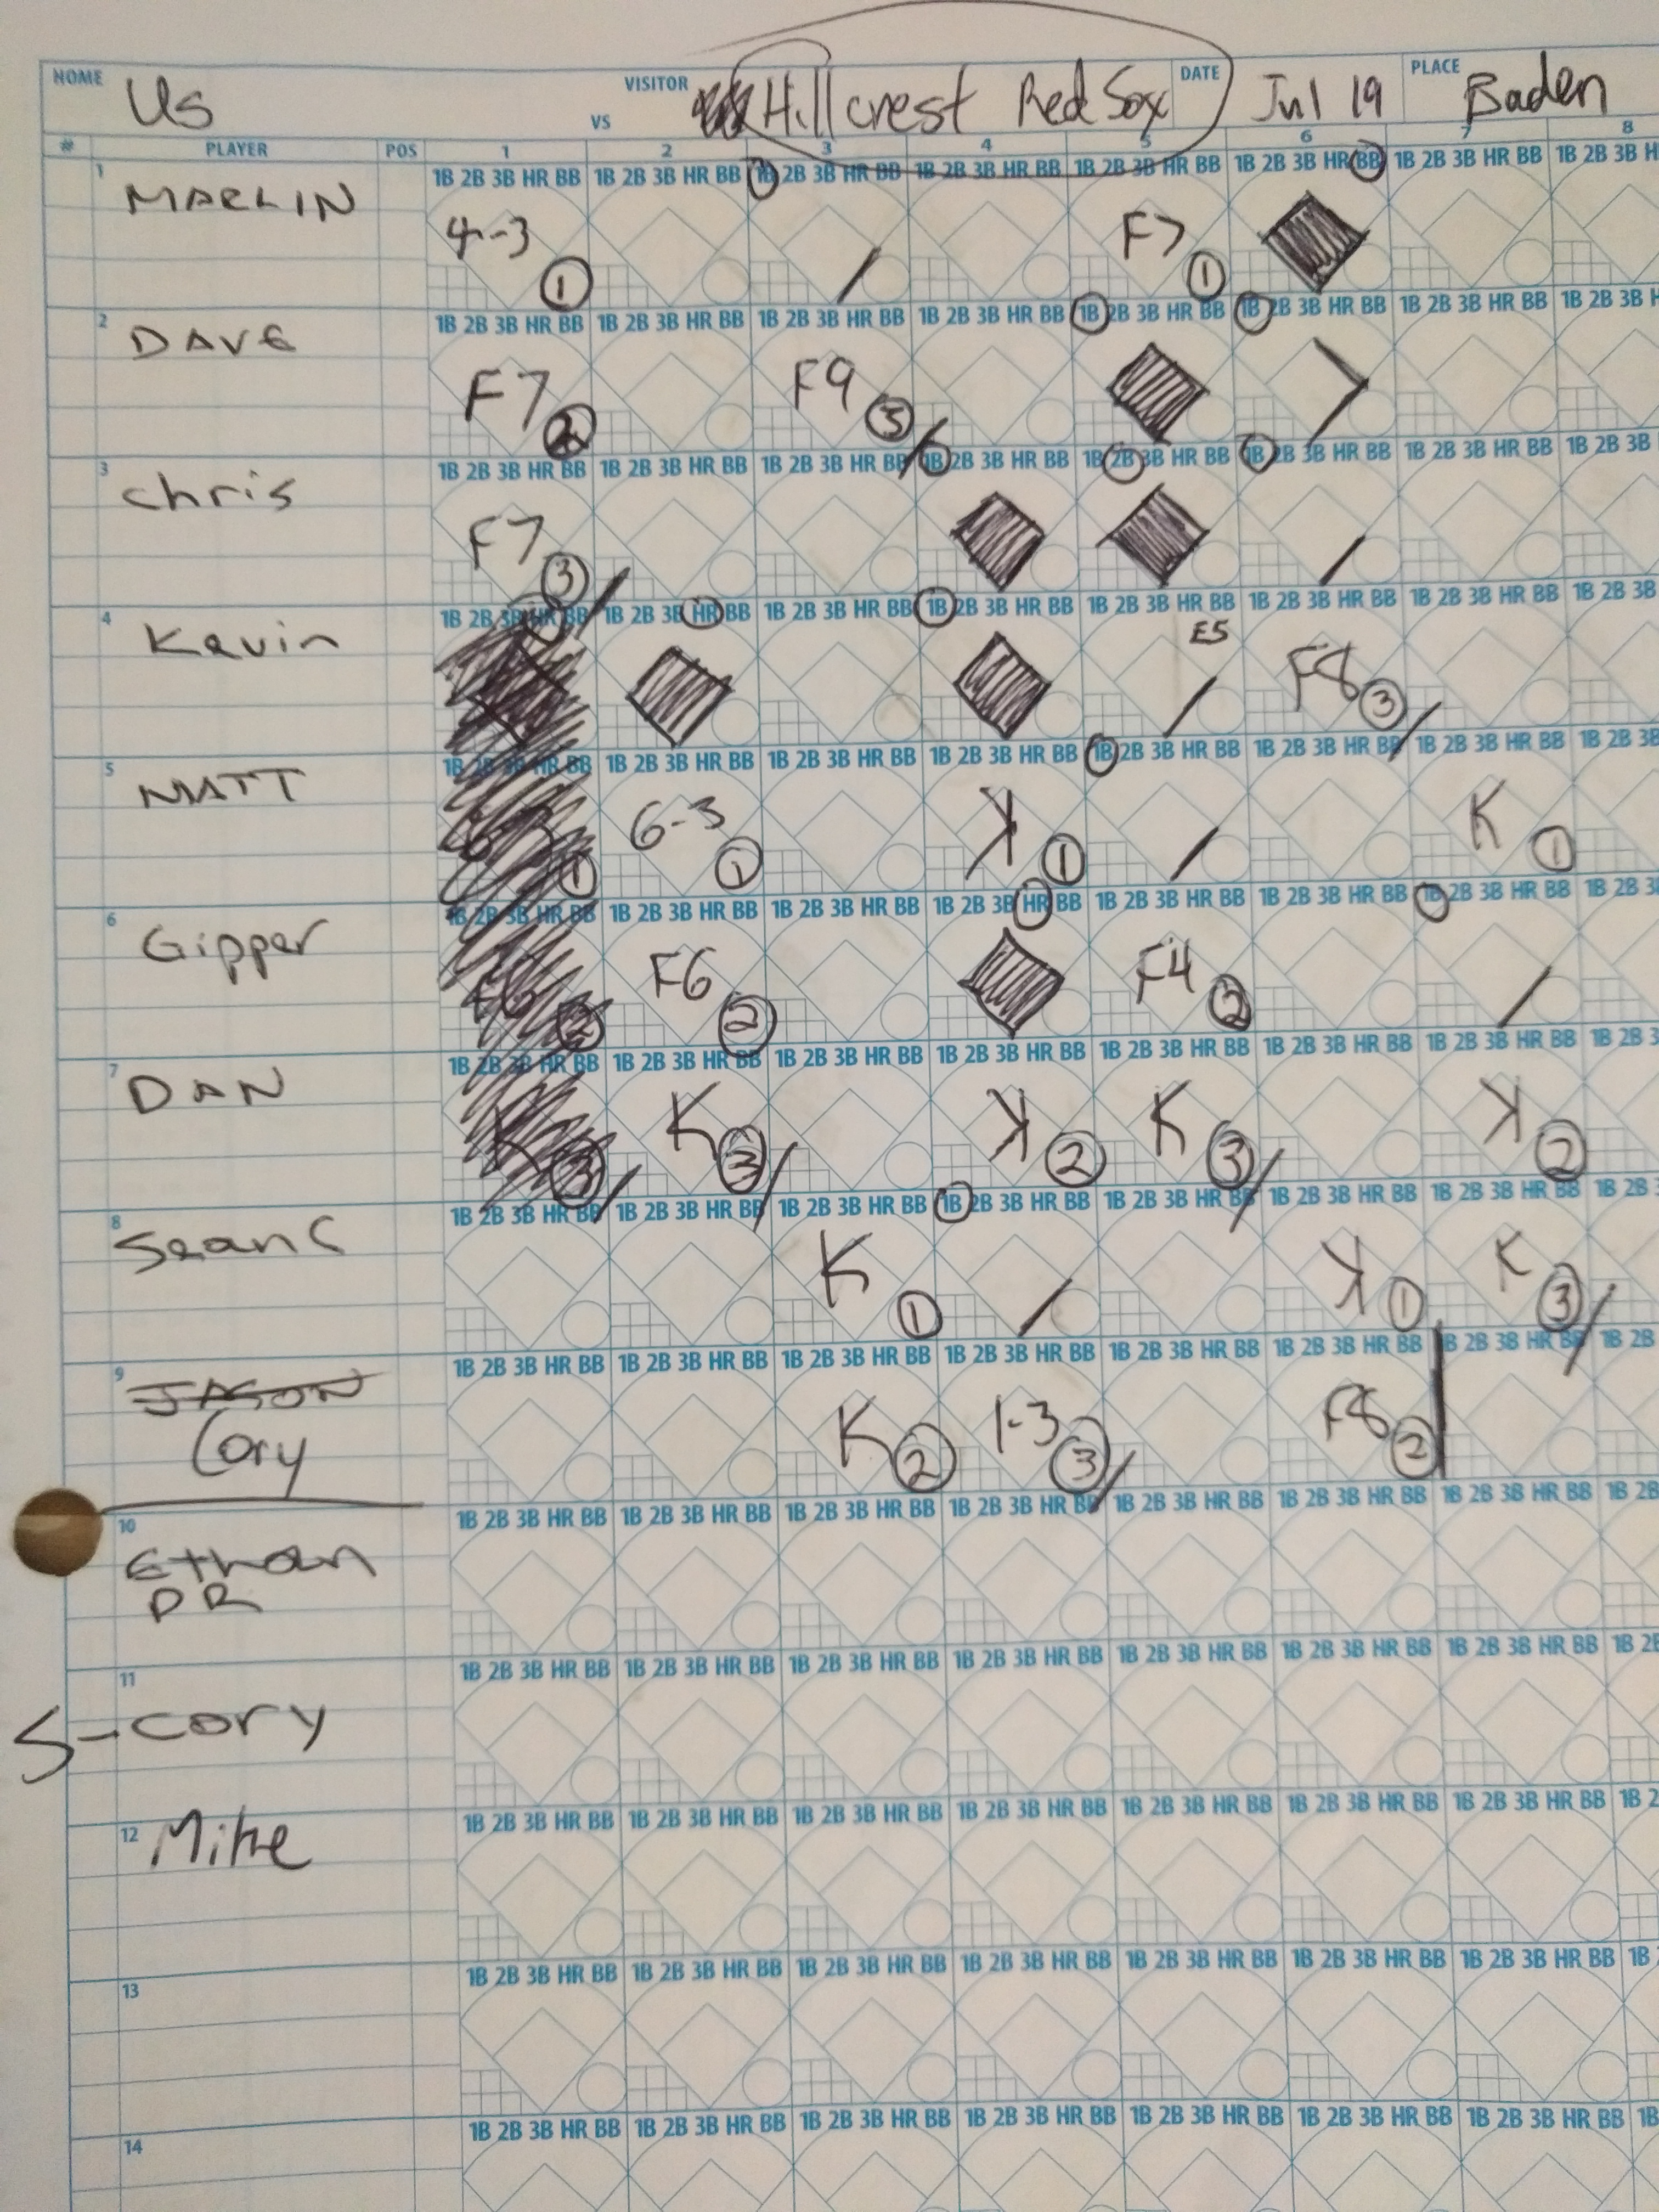 HOME Us VS VISITOR Hillcrest Red Sox DATE Jul 19 PLACE Baden
# PLAYER POS 1 2 3 4 5 6 7 8
1 MARLIN 1B 2B 3B HR BB 1B 2B 3B HR BB 1B 2B 3B HR BB 1B 2B 3B HR BB 1B 2B 3B HR BB 1B 2B 3B HR BB 1B 2B 3B HR BB 1B 2B 3B H
4-3 1 F7 1
2 DAVE 1B 2B 3B HR BB 1B 2B 3B HR BB 1B 2B 3B HR BB 1B 2B 3B HR BB 1B 2B 3B HR BB 1B 2B 3B HR BB 1B 2B 3B HR BB 1B 2B 3B H
F7 2 F9 3
3 Chris 1B 2B 3B HR BB 1B 2B 3B HR BB 1B 2B 3B HR BB 1B 2B 3B HR BB 1B 2B 3B HR BB 1B 2B 3B HR BB 1B 2B 3B HR BB 1B 2B 3B
F7 3
4 Kevin 1B 2B 3B HR BB 1B 2B 3B HR BB 1B 2B 3B HR BB 1B 2B 3B HR BB 1B 2B 3B HR BB 1B 2B 3B HR BB 1B 2B 3B HR BB 1B 2B 3B
E5 F8 3
5 MATT 1B 2B 3B HR BB 1B 2B 3B HR BB 1B 2B 3B HR BB 1B 2B 3B HR BB 1B 2B 3B HR BB 1B 2B 3B HR BB 1B 2B 3B HR BB 1B 2B 3B
1 6-3 1 K 1 K 1
6 Gipper 1B 2B 3B HR BB 1B 2B 3B HR BB 1B 2B 3B HR BB 1B 2B 3B HR BB 1B 2B 3B HR BB 1B 2B 3B HR BB 1B 2B 3B HR BB 1B 2B 3
F6 2 F6 2 F4 2
7 DAN 1B 2B 3B HR BB 1B 2B 3B HR BB 1B 2B 3B HR BB 1B 2B 3B HR BB 1B 2B 3B HR BB 1B 2B 3B HR BB 1B 2B 3B HR BB 1B 2B 3
K 3 K 3 K 2 K 3 K 2
8 Sean C 1B 2B 3B HR BB 1B 2B 3B HR BB 1B 2B 3B HR BB 1B 2B 3B HR BB 1B 2B 3B HR BB 1B 2B 3B HR BB 1B 2B 3B HR BB 1B 2B 3
K 1 K 1 K 3
9 JASON 1B 2B 3B HR BB 1B 2B 3B HR BB 1B 2B 3B HR BB 1B 2B 3B HR BB 1B 2B 3B HR BB 1B 2B 3B HR BB 1B 2B 3B HR BB 1B 2B
Cory K 2 1-3 3 F8 2
10 1B 2B 3B HR BB 1B 2B 3B HR BB 1B 2B 3B HR BB 1B 2B 3B HR BB 1B 2B 3B HR BB 1B 2B 3B HR BB 1B 2B 3B HR BB 1B 2B
Ethan
DR
11 1B 2B 3B HR BB 1B 2B 3B HR BB 1B 2B 3B HR BB 1B 2B 3B HR BB 1B 2B 3B HR BB 1B 2B 3B HR BB 1B 2B 3B HR BB 1B 2B
S-Cory
12 Mike 1B 2B 3B HR BB 1B 2B 3B HR BB 1B 2B 3B HR BB 1B 2B 3B HR BB 1B 2B 3B HR BB 1B 2B 3B HR BB 1B 2B 3B HR BB 1B 2
13 1B 2B 3B HR BB 1B 2B 3B HR BB 1B 2B 3B HR BB 1B 2B 3B HR BB 1B 2B 3B HR BB 1B 2B 3B HR BB 1B 2B 3B HR BB 1B
14 1B 2B 3B HR BB 1B 2B 3B HR BB 1B 2B 3B HR BB 1B 2B 3B HR BB 1B 2B 3B HR BB 1B 2B 3B HR BB 1B 2B 3B HR BB 1B